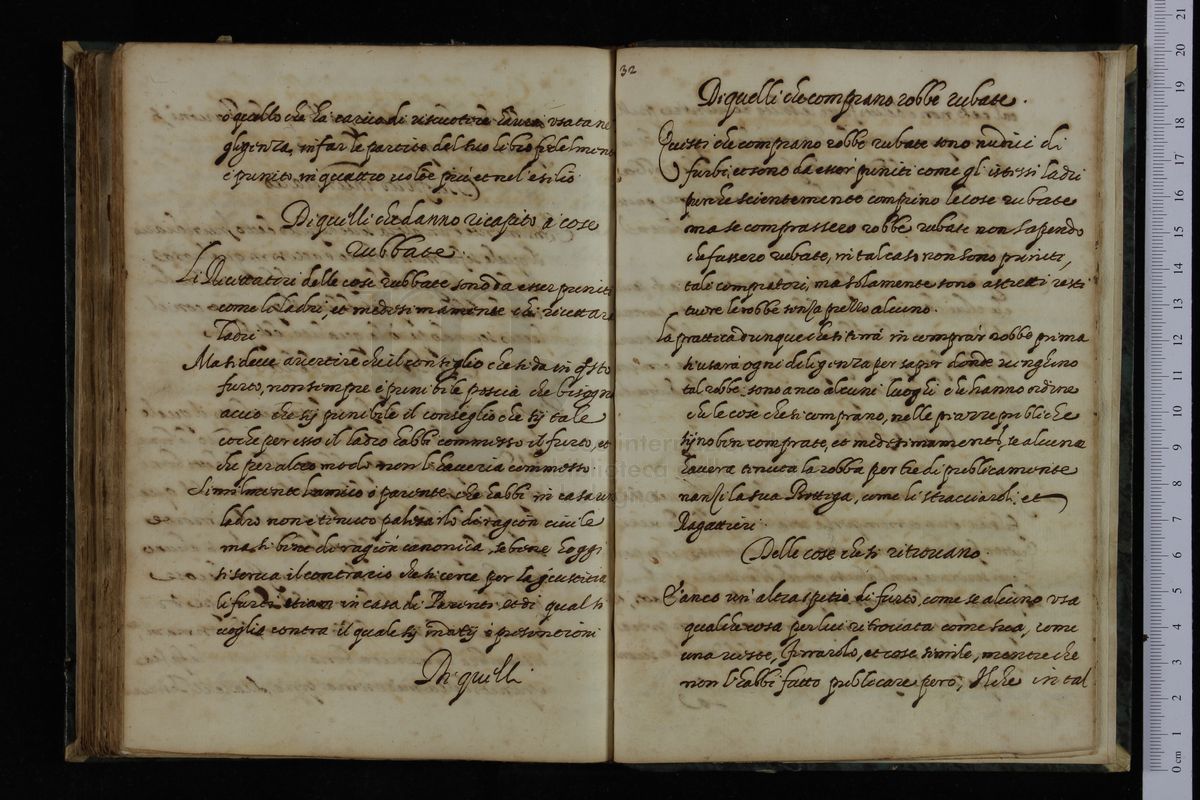 o quello che hà carico di riscuotere havea usata ne
gligenza, in far le partite del suo libro fidelment
è punito in quattro volte più et nel esilio
Di quelli che danno ricapito a cose
rubbate.
Li Ricettatori delle cose rubbate sono da esser puniti
come li ladri, et medesimamente chi ricettara
ladri
Ma si deve avertire che il consiglio che si dà in q.sto
furto, non sempre è punibile poscia che bisogna
acciò che sij punibile il conseglio che sij tale
che per esso il ladro habbi commesso il furto, et
che per altro modo non l'haveria commesso
Similmente l'amico ò parente che habbi in casa un
ladro non è tenuto palesarlo di ragion civile
ma si bene di ragion canonica, se bene hoggi
si serva il contrario che si cerca per la giusticia
li furti etiam in casa di Parenti et di qual si
voglia contra il quale sij inditij ò presontioni
Di quelli
32
Di quelli che comprano robbe rubate.
Questi che comprano robbe rubate sono nudrici di
furbi, et sono da esser puniti come gl'istessi ladri
perche scientemente comprino le cose rubate
ma se comprassero robbe rubate non sapendo
che fussero rubate, in tal caso non sono puniti,
tali compretori, ma solamente sono astretti resti
tuere le robbe senza prezzo alcuno.
La prattica dunque che si tirrà in comprar robbe prima
si usarà ogni diligenza per saper donde venghino
tal robbe, sono anco alcuni luoghi che hanno ordine
che le cose che si comprano, nelle piazze publiche
sijno ben comprate, et medesimamente, se alcuna
haverà tenuta la robba per tre dì publicamente
nanzi la sua Bottega, come li stracciaroli et
Regattieri
Delle cose che si ritrovano.
E' anco un' altra spetie di furto, come se alcuno usa
qualche cosa per lui ritrovata come sua, come
una veste, Ferraiolo, et cose simile, mentre che
non l'habbi fatto publicare però, Il che in tal